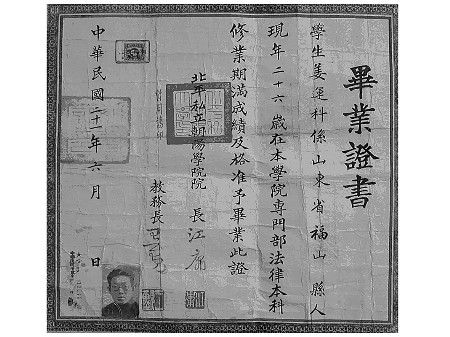 畢業證書
學生姜運科係山東省福山縣人
現年二十六歲在本學院專門部法律本科
修業期滿成績及格准予畢業此證
北平私立朝陽學院院長江庸
教務長
中華民國二十一年六月 日